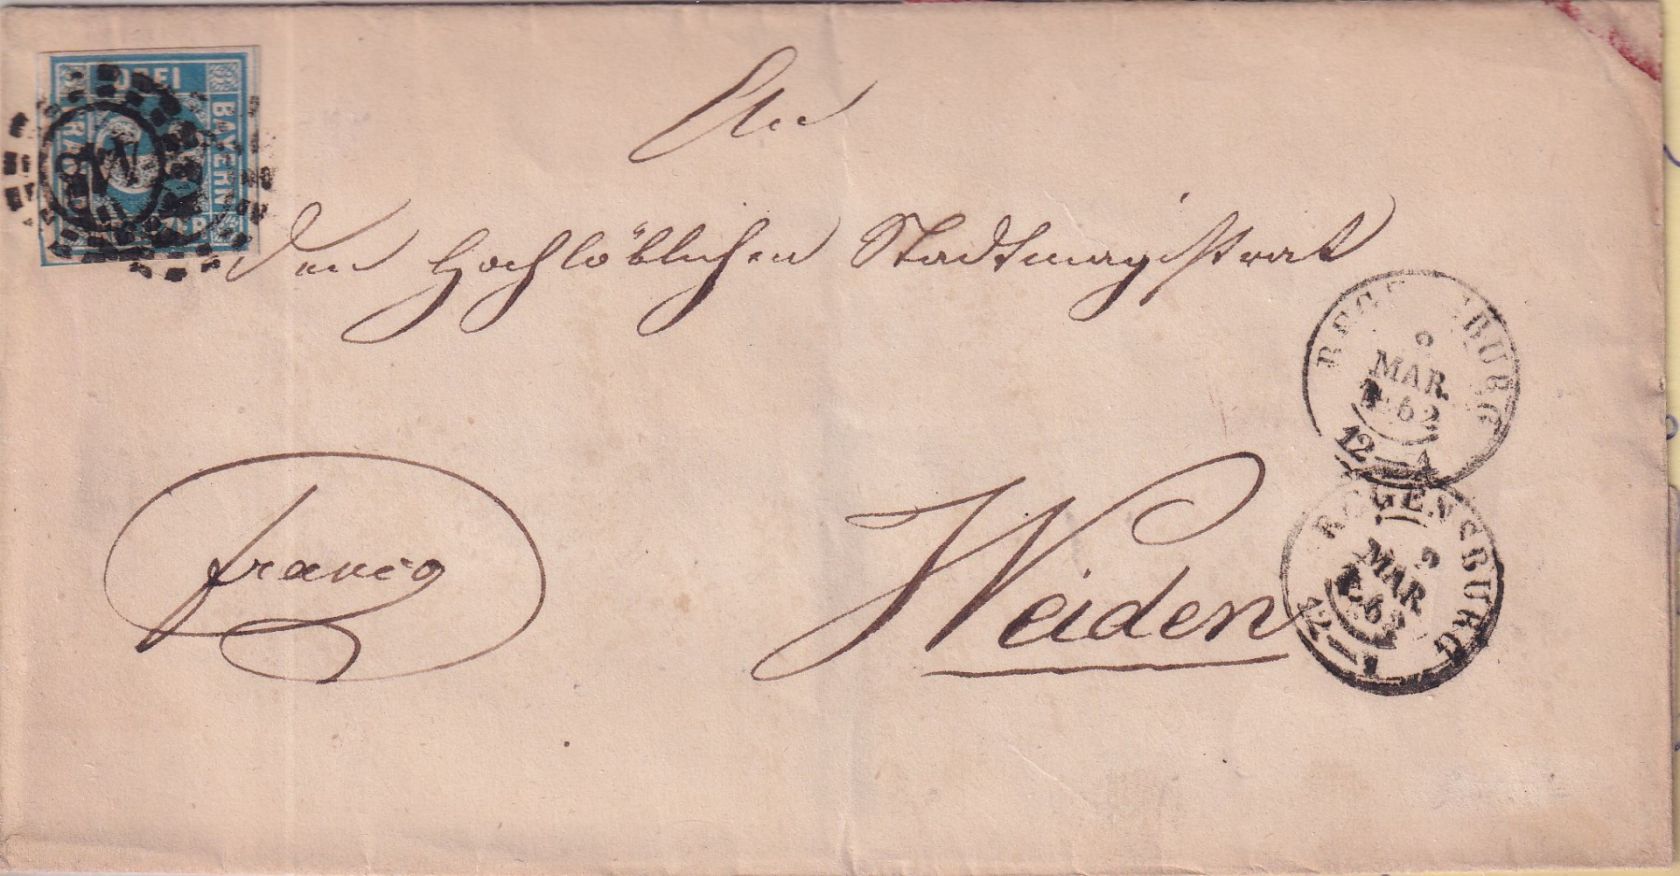 DREI
BAYERN
An
den Hochlöblichen Stadtmagistrat
REGENSBURG
MAR
1862
12
franco
Weiden
REGENSBURG
9
MAR
12